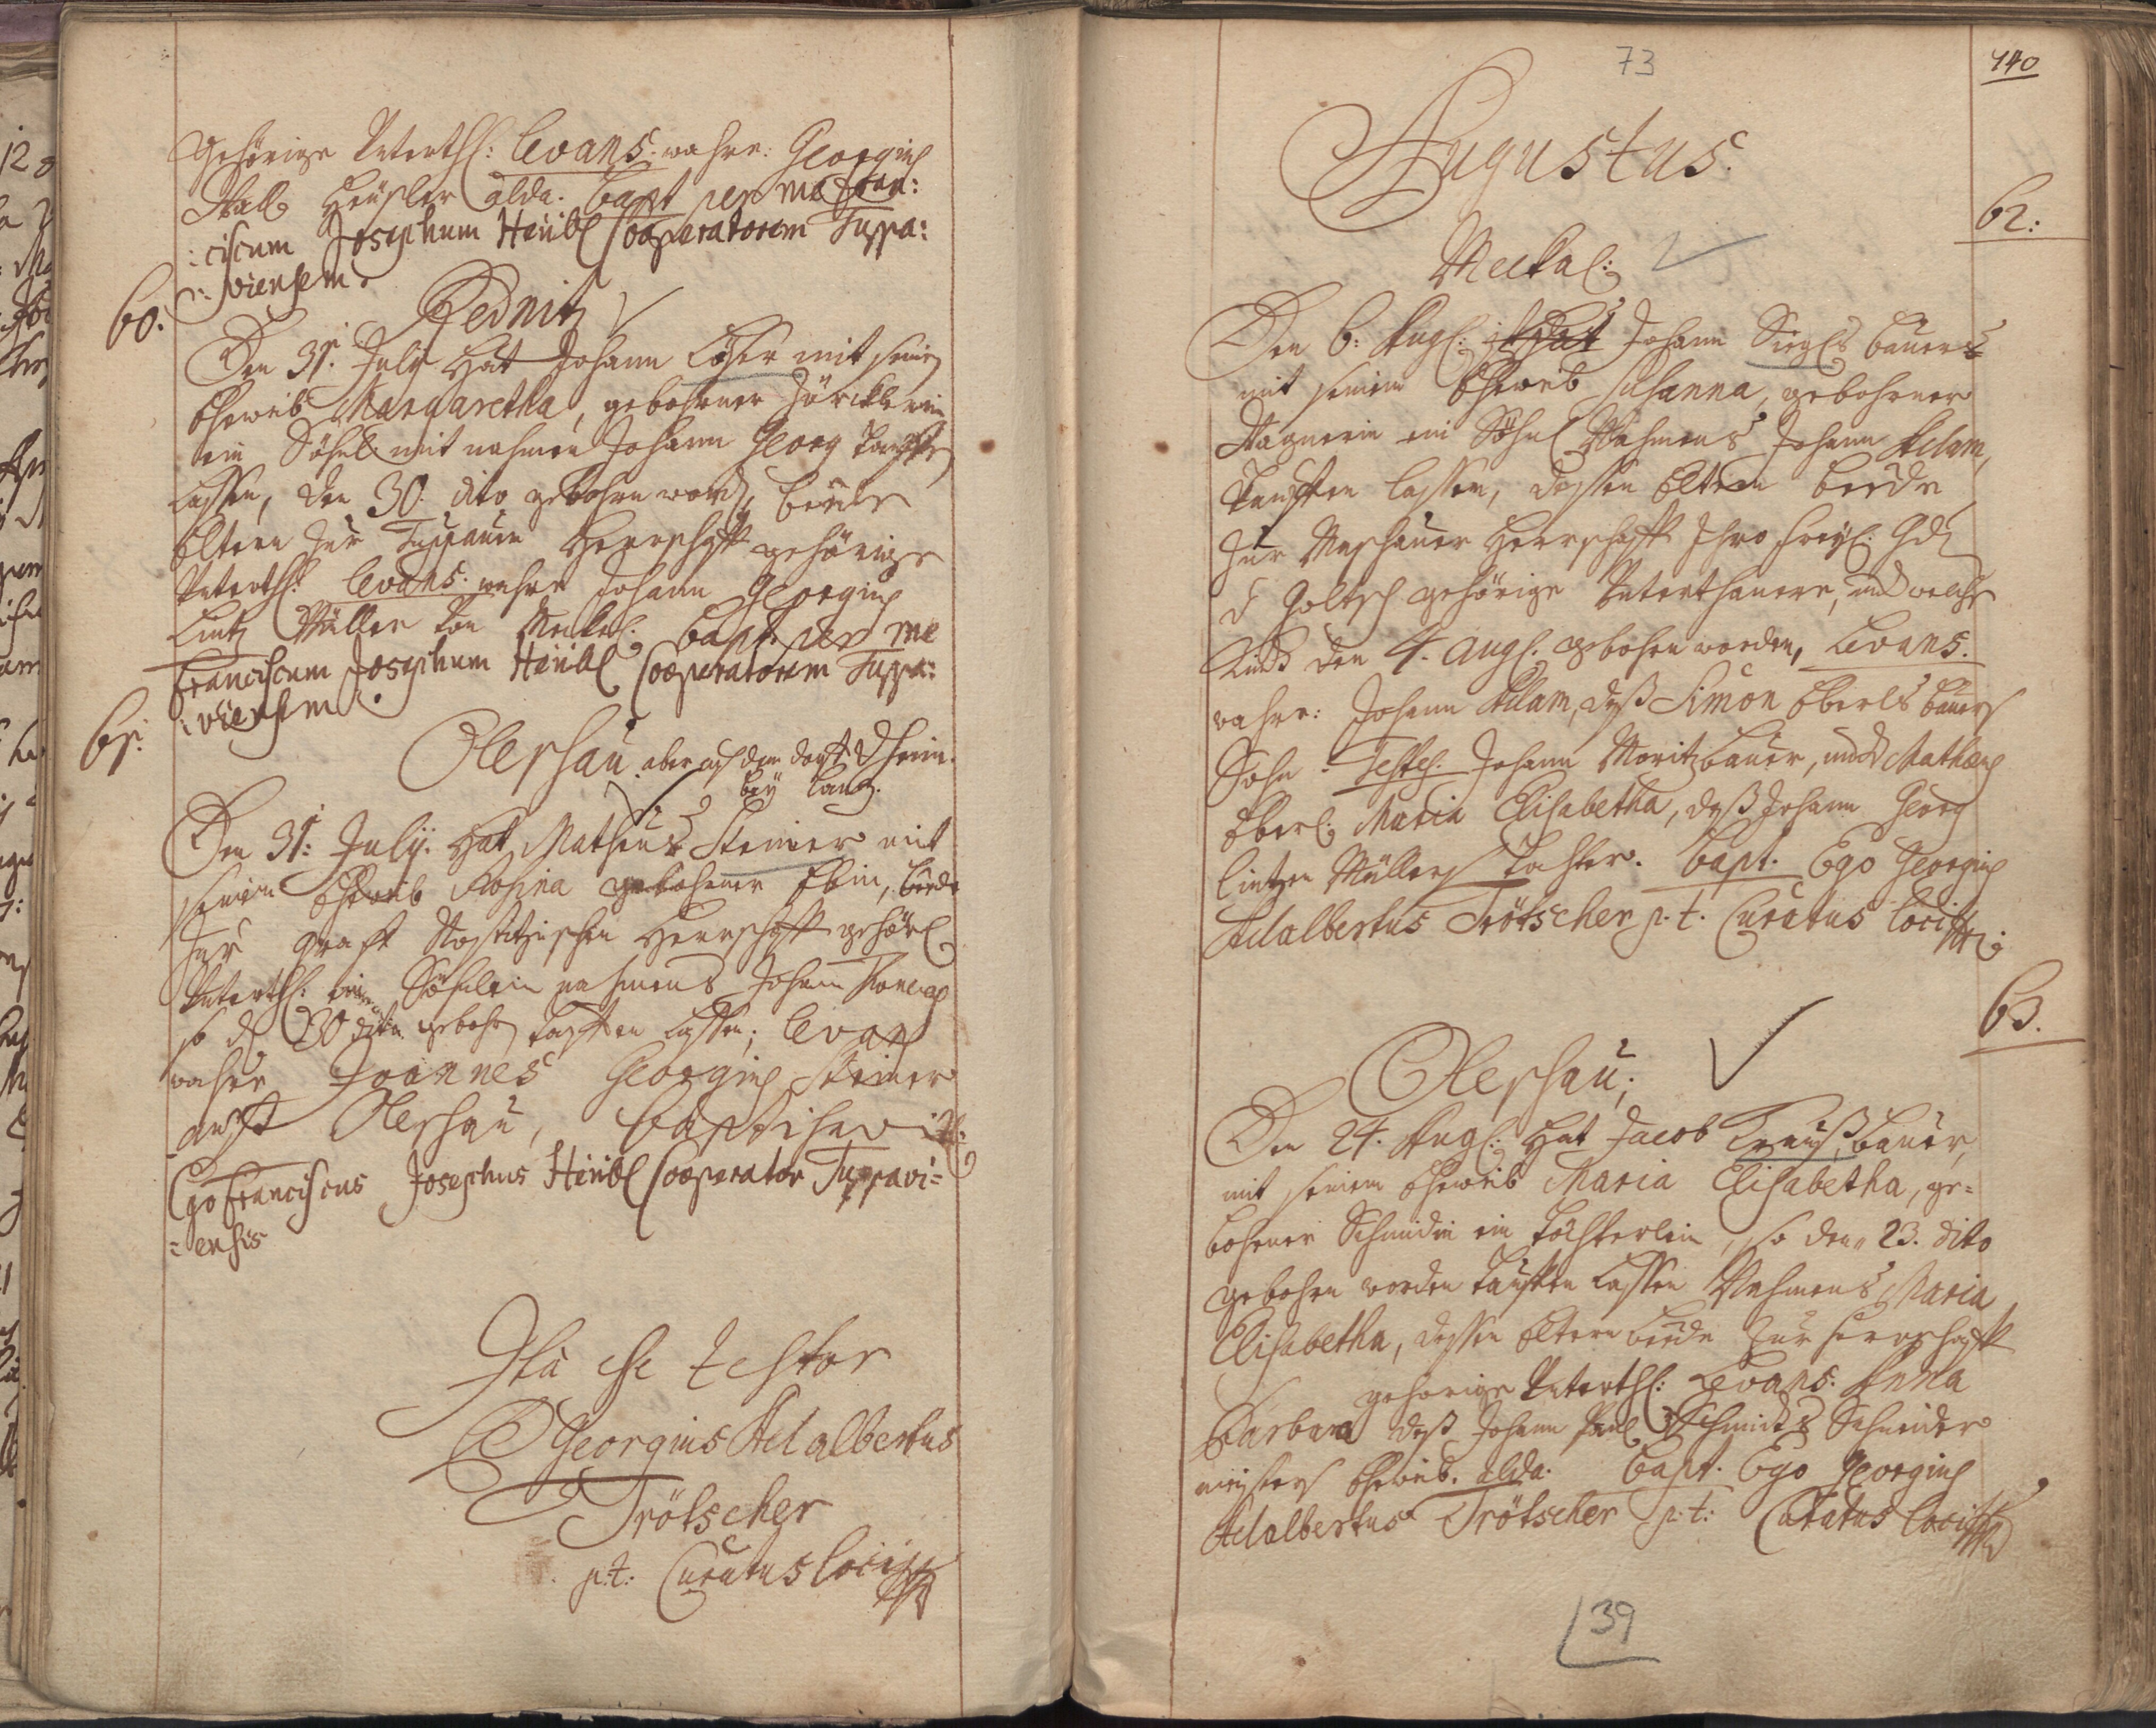 gehörige Unterth: levans. wahre: Georgius
Häußler alda. bapt per me Fran:
:ciscum Josephum Heribl Cooperatorem Tuppa:
:viensem.
60.
Rednitz
Den 31. July hat Johann Löser mit seinen
Eheweib Margaretha, gebohrner
ein Söhnl mit nahmen Johann Georg tauffen
lassen, den 30. dito gebohrn word, beyde
Eltern zur Tuppauer Herrschafft gehörige
Unterth: levans. wahre Johann Georgius
Lintz Müller von Meckel: bapt: per me
Franciscum Josephum Heribl Cooperatorem Tuppa:
:viensem.
61.
Olleschau. aber auß dem dorff
bey
Den 31: July: hat Matheus Steiner mit
seinem Eheweib Rosina gebohrner Ebin, beyde
zur graff Nostitzischen Herrschafft gehöri
Unterth: ein Söhnlein nahmens Johann
so d 30 dito gebohr tauffen lassen; levans
wahre Joannes Georgius Steiner
auß Olleschau, baptisavit:
Ego Franciscus Josephus Heribl Cooperator Tuppavi=
=ensis
Ita esse testor
P Georgius Adalbertus
Trötscher
p:t: Curatus loci
73
140
Augustus.
62:
Meckel:
Den 6: Aug: hat Johann Siegls bauer
mit seinem Eheweib Susanna, gebohrner
Wagnerin ein Söhnl Nahmens Johann Adam,
tauffen lassen, dessen Eltern beede
zur Maschauer Herrschafft Ihro freyl: Gd
v Goltsch gehörige Unterthanen, und welches
Kind den 4. Aug: gebohrn worden, Levans.
wahre: Johann Adam, deß Simon Eberls bauers
Sohn. Testes. Johann Moritz bauer, und Mathaeus
Eberl: Maria Elisabetha, deß Johann Georg
Lintzen Müllers tochter. bapt. Ego Georgius
Adalbertus Trötscher p.t. Curatus loci
63.
Olleschau;
Den 24. Aug: hat Jacob Krauß, bauer,
mit seinem Eheweib Maria Elisabetha, ge=
bohrner Schmidin ein töchterlein, so den 23. dito
gebohrn worden tauffen lassen Nahmens Maria
Elisabetha, dessen Eltern beede zur herrschafft
gehorige Unterth: Levans: Anna
Barbara deß Johann Paul Schmidts Schneider
meisters Eheweib. alda. bapt. Ego Georgius
Adalbertus Trötscher p:t: Curatus loci
39